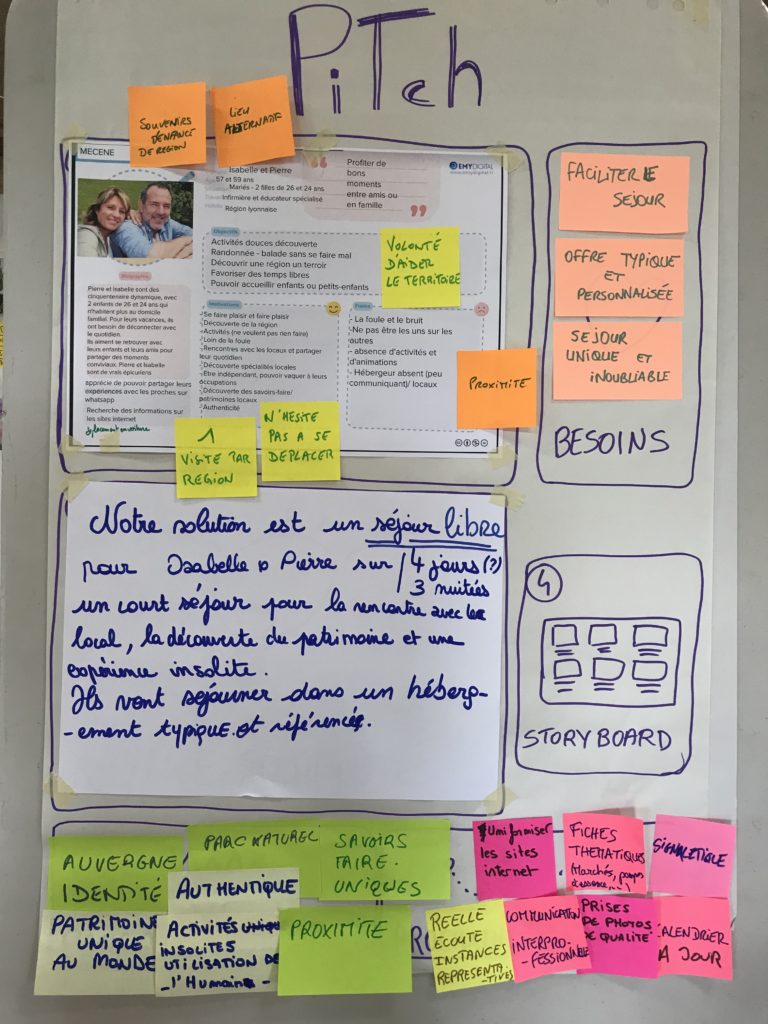 PiTch
SOUVENIRS
D'ENFANCE
DE REGION
LIEU
ALTERNATIF
MECENE
Isabelle et Pierre
57 et 59 ans
Mariés - 2 filles de 26 et 24 ans
Infirmière et éducateur spécialisé
Région lyonnaise
Profiter de
bons
moments
entre amis ou
en famille
EMYDIGITAL
Objectifs
Activités douces découverte
Randonnée - balade sans se faire mal
Découvrir une région un terroir
Favoriser des temps libres
Pouvoir accueillir enfants ou petits-enfants
VOLONTÉ
D'AIDER
LE TERRITOIRE
Biographie
Pierre et Isabelle sont des
cinquentenaire dynamique, avec
2 enfants de 26 et 24 ans qui
n'habitent plus au domicile
familial. Pour leur vacances, ils
ont besoin de déconnecter avec
le quotidien.
Ils aiment se retrouver avec
leurs enfants et leurs amis pour
partager des moments
conviviaux. Pierre et Isabelle
sont de vrais épicuriens
apprécie de pouvoir partager leurs
expériences avec les proches sur
whatsapp
Recherche des informations sur
les sites internet
déplacement en voiture
Motivations
-Se faire plaisir et faire plaisir
-Découverte de la région
-Activités (ne veulent pas rien faire)
-Loin de la foule
-Rencontres avec les locaux et partager
leur quotidien
-Découverte spécialités locales
-Etre indépendant, pouvoir vaquer à leurs
occupations
-Découverte des savoirs-faire/
patrimoines locaux
-Authenticité
Freins
- La foule et le bruit
-Ne pas être les uns sur les
autres
- absence d'activités et
d'animations
- Hébergeur absent (peu
communiquant)/ locaux
PROXIMITE
1
VISITE PAR
REGION
N'HESITE
PAS A SE
DEPLACER
FACILITER LE
SEJOUR
OFFRE TYPIQUE
ET
PERSONNALISÉE
SEJOUR
UNIQUE ET
INOUBLIABLE
BESOINS
Notre solution est un séjour libre
pour Isabelle & Pierre sur / 4 jours (?)
3 nuitées
un court séjour pour la rencontre avec le
local, la découverte du patrimoine et une
expérience insolite.
Ils vont séjourner dans un héberg-
-ement typique et référencé.
4
STORYBOARD
AUVERGNE/
IDENTITÉ
PARC NATUREL
SAVOIRS
FAIRE.
UNIQUES
AUTHENTIQUE
PATRIMOINE
UNIQUE
AU MONDE
ACTIVITÉS UNIQUE
INSOLITES
UTILISATION DE
- l'Humain -
PROXIMITE
Uniformiser
les sites
internet
FICHES
THEMATIQUES
(Marchés, pompes
d'essence,...)
SIGNALETIQUE
REELLE
ECOUTE
INSTANCES
REPRESENTA
-TIVES
COMMUNICATION
INTERPRO-
FESSIONNELLE
PRISES
DE PHOTOS
DE QUALITÉ
CALENDRIER
A JOUR